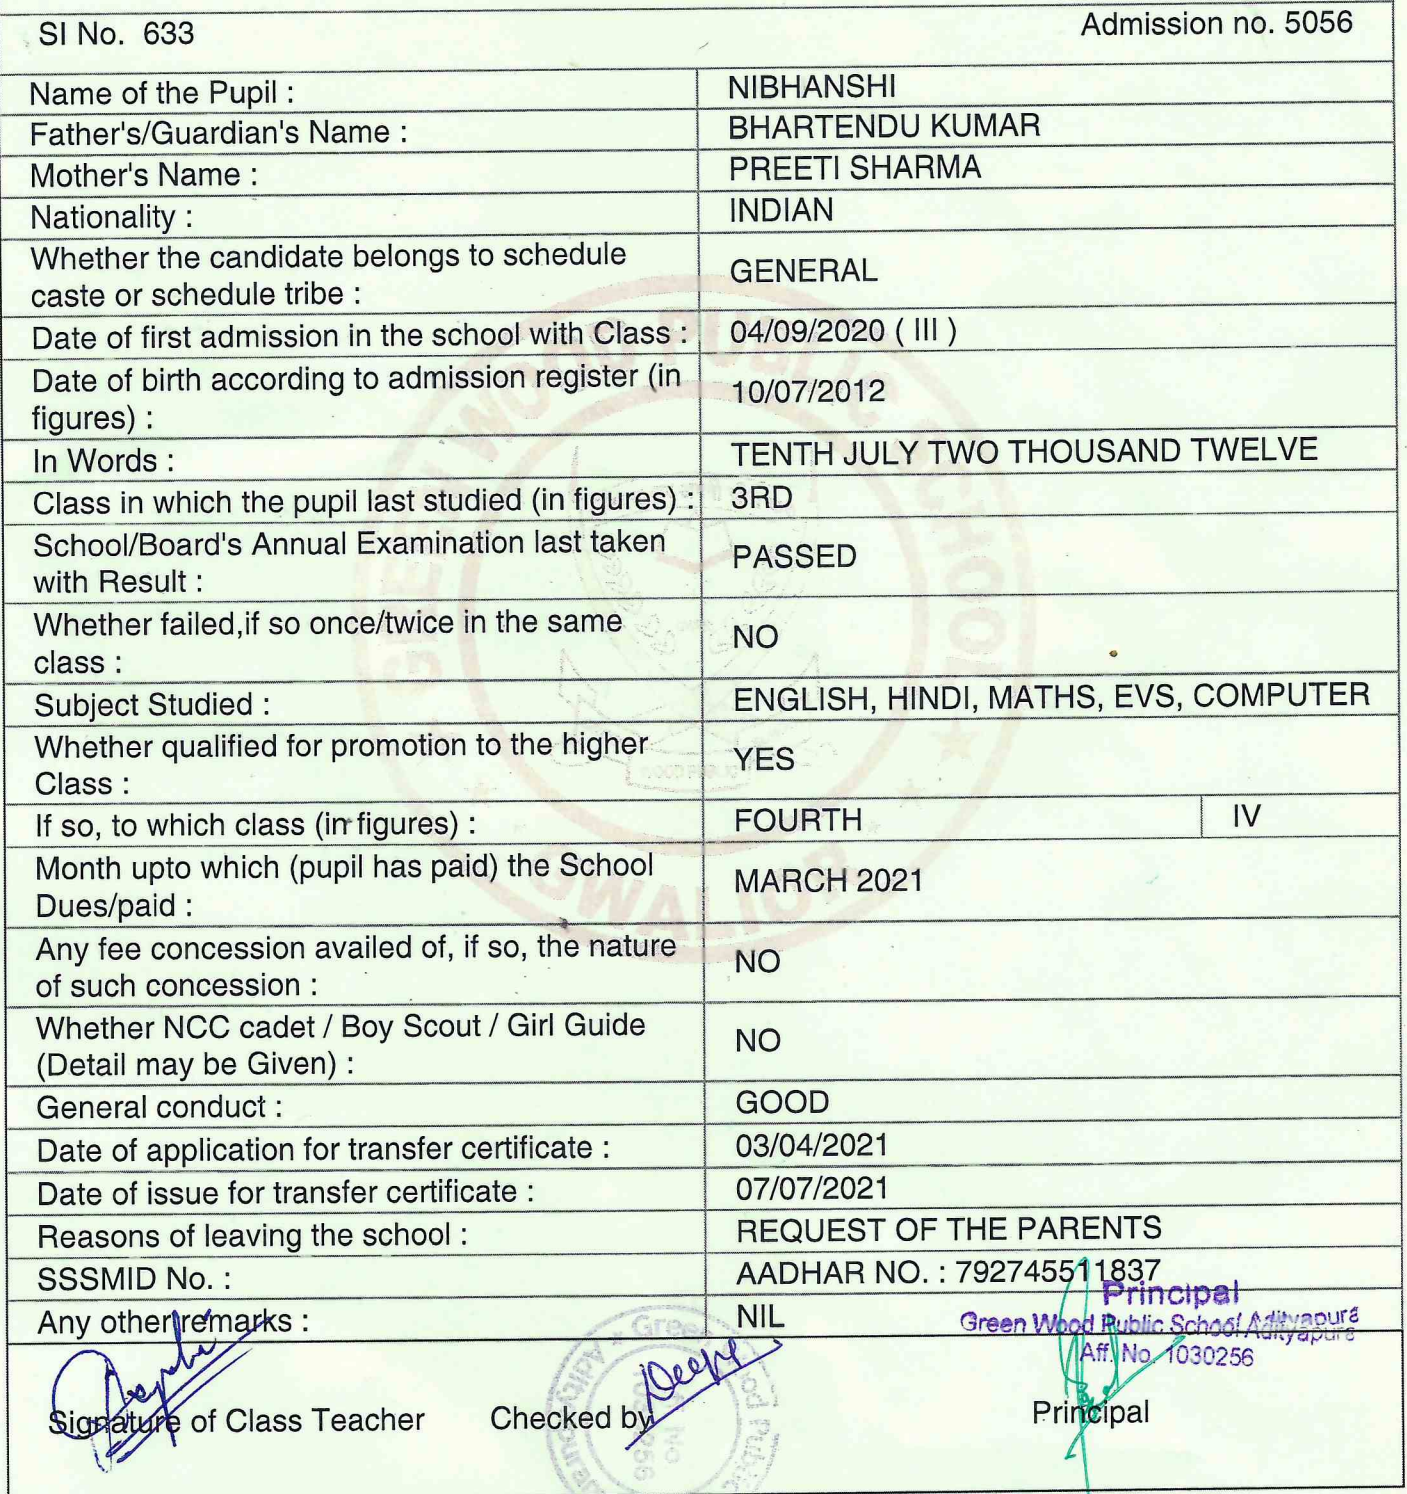 SI No. 633 Admission no. 5056
Name of the Pupil : NIBHANSHI
Father's/Guardian's Name : BHARTENDU KUMAR
Mother's Name : PREETI SHARMA
Nationality : INDIAN
Whether the candidate belongs to schedule
caste or schedule tribe : GENERAL
Date of first admission in the school with Class : 04/09/2020 ( III )
Date of birth according to admission register (in
figures) : 10/07/2012
In Words : TENTH JULY TWO THOUSAND TWELVE
Class in which the pupil last studied (in figures) : 3RD
School/Board's Annual Examination last taken
with Result : PASSED
Whether failed,if so once/twice in the same
class : NO
Subject Studied : ENGLISH, HINDI, MATHS, EVS, COMPUTER
Whether qualified for promotion to the higher
Class : YES
If so, to which class (in figures) : FOURTH IV
Month upto which (pupil has paid) the School
Dues/paid : MARCH 2021
Any fee concession availed of, if so, the nature
of such concession : NO
Whether NCC cadet / Boy Scout / Girl Guide
(Detail may be Given) : NO
General conduct : GOOD
Date of application for transfer certificate : 03/04/2021
Date of issue for transfer certificate : 07/07/2021
Reasons of leaving the school : REQUEST OF THE PARENTS
SSSMID No. : AADHAR NO. : 792745511837
Any other remarks : NIL
Principal
Green Wood Public School Adityapura
Aff. No. 1030256
Signature of Class Teacher Checked by Principal
Deepe
GREEN WOOD PUBLIC SCHOOL
GWALIOR